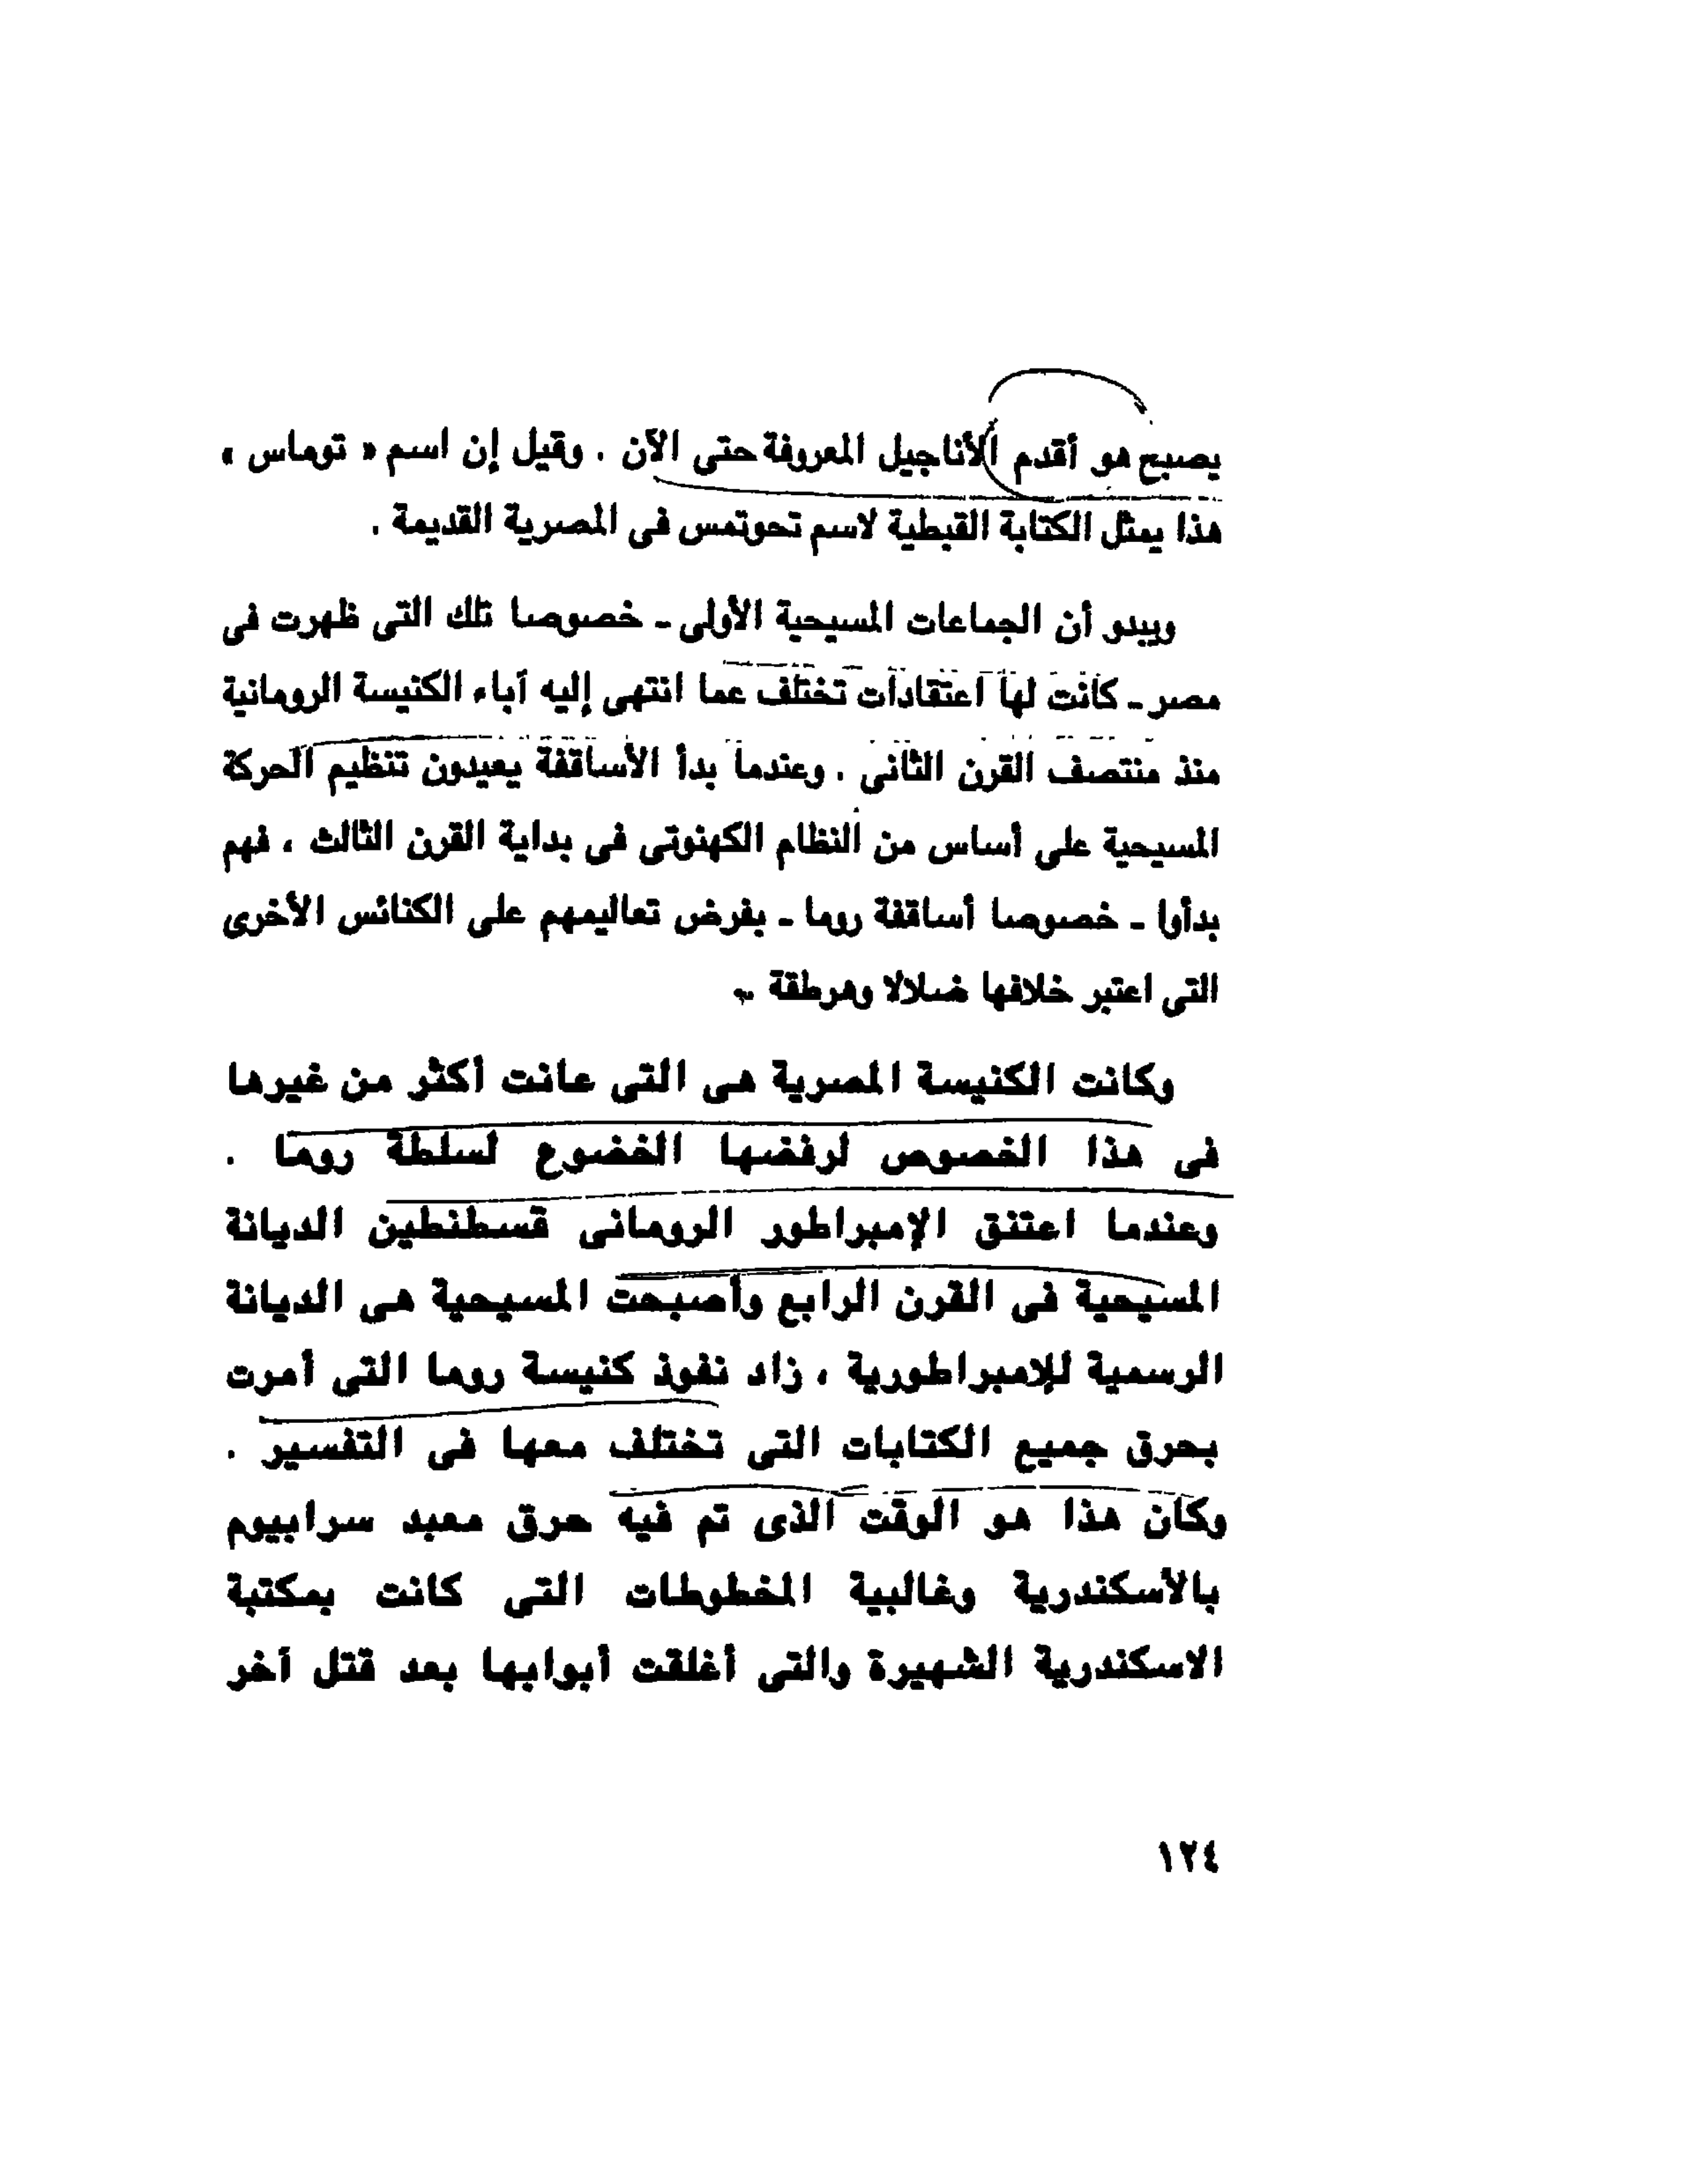 يصبح هو أقدم الأناجيل المعروفة حتى الآن . وقيل إن اسم « توماس »
هذا يمثل الكتابة القبطية لاسم تحوتمس فى المصرية القديمة .
ويبدو أن الجماعات المسيحية الأولى ـ خصوصا تلك التى ظهرت فى
مصر ـ كانت لها اعتقادات تختلف عما انتهى إليه آباء الكنيسة الرومانية
منذ منتصف القرن الثانى . وعندما بدأ الأساقفة يعيدون تنظيم الحركة
المسيحية على أساس من النظام الكهنوتى فى بداية القرن الثالث ، فهم
بدأوا ـ خصوصا أساقفة روما ـ بفرض تعاليمهم على الكنائس الأخرى
التى اعتبر خلافها ضلالا وهرطقة .
وكانت الكنيسة المصرية هى التى عانت أكثر من غيرها
فى هذا الخصوص لرفضها الخضوع لسلطة روما .
وعندما اعتنق الإمبراطور الرومانى قسطنطين الديانة
المسيحية فى القرن الرابع وأصبحت المسيحية هى الديانة
الرسمية للإمبراطورية ، زاد نفوذ كنيسة روما التى أمرت
بحرق جميع الكتابات التى تختلف معها فى التفسير .
وكان هذا هو الوقت الذى تم فيه حرق معبد سرابيوم
بالأسكندرية وغالبية المخطوطات التى كانت بمكتبة
الاسكندرية الشهيرة والتى أغلقت أبوابها بعد قتل آخر
١٢٤